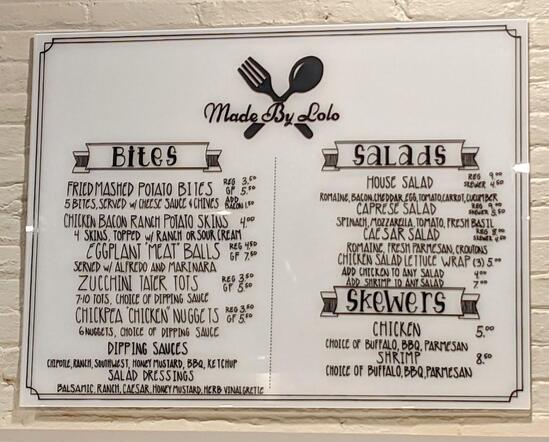 Made By Lolo
Bites
FRIED MASHED POTATO BITES REG 3.50 GF 5.50
5 BITES, SERVED W/ CHEESE SAUCE & CHIVES ADD BACON 1.50
CHICKEN BACON RANCH POTATO SKINS 4.00
4 SKINS, TOPPED W/ RANCH OR SOUR CREAM
EGGPLANT "MEAT" BALLS REG 4.50 GF 7.50
SERVED W/ ALFREDO AND MARINARA
ZUCCHINI TATER TOTS REG 3.50 GF 5.50
7-10 TOTS, CHOICE OF DIPPING SAUCE
CHICKPEA "CHICKEN" NUGGETS REG 3.50 GF 5.50
6 NUGGETS, CHOICE OF DIPPING SAUCE
DIPPING SAUCES
CHIPOTLE, RANCH, SOUTHWEST, HONEY MUSTARD, BBQ, KETCHUP
SALAD DRESSINGS
BALSAMIC, RANCH, CAESAR, HONEY MUSTARD, HERB VINAIGRETTE
Salads
HOUSE SALAD REG 9.00 SKEWER 4.50
ROMAINE, BACON, CHEDDAR, EGG, TOMATO, CARROT, CUCUMBER
CAPRESE SALAD REG 9.00 SKEWER
SPINACH, MOZZARELLA, TOMATO, FRESH BASIL
CAESAR SALAD REG 8.00 SKEWER
ROMAINE, FRESH PARMESAN, CROUTONS
CHICKEN SALAD LETTUCE WRAP (3) 5.00
ADD CHICKEN TO ANY SALAD 4.00
ADD SHRIMP TO ANY SALAD 7.00
Skewers
CHICKEN 5.00
CHOICE OF BUFFALO, BBQ, PARMESAN
SHRIMP 8.50
CHOICE OF BUFFALO, BBQ, PARMESAN